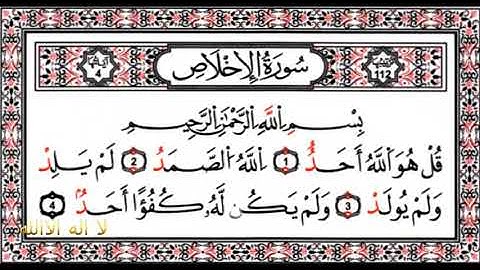 ترتيبها ١١٢ سُورَةُ الإِخْلَاصِ آياتها ٤
بِسْمِ اللَّهِ الرَّحْمَٰنِ الرَّحِيمِ
قُلْ هُوَ اللَّهُ أَحَدٌ 1 اللَّهُ الصَّمَدُ 2 لَمْ يَلِدْ
وَلَمْ يُولَدْ 3 وَلَمْ يَكُن لَّهُۥ كُفُوًا أَحَدٌۢ 4
لا اله الا الله